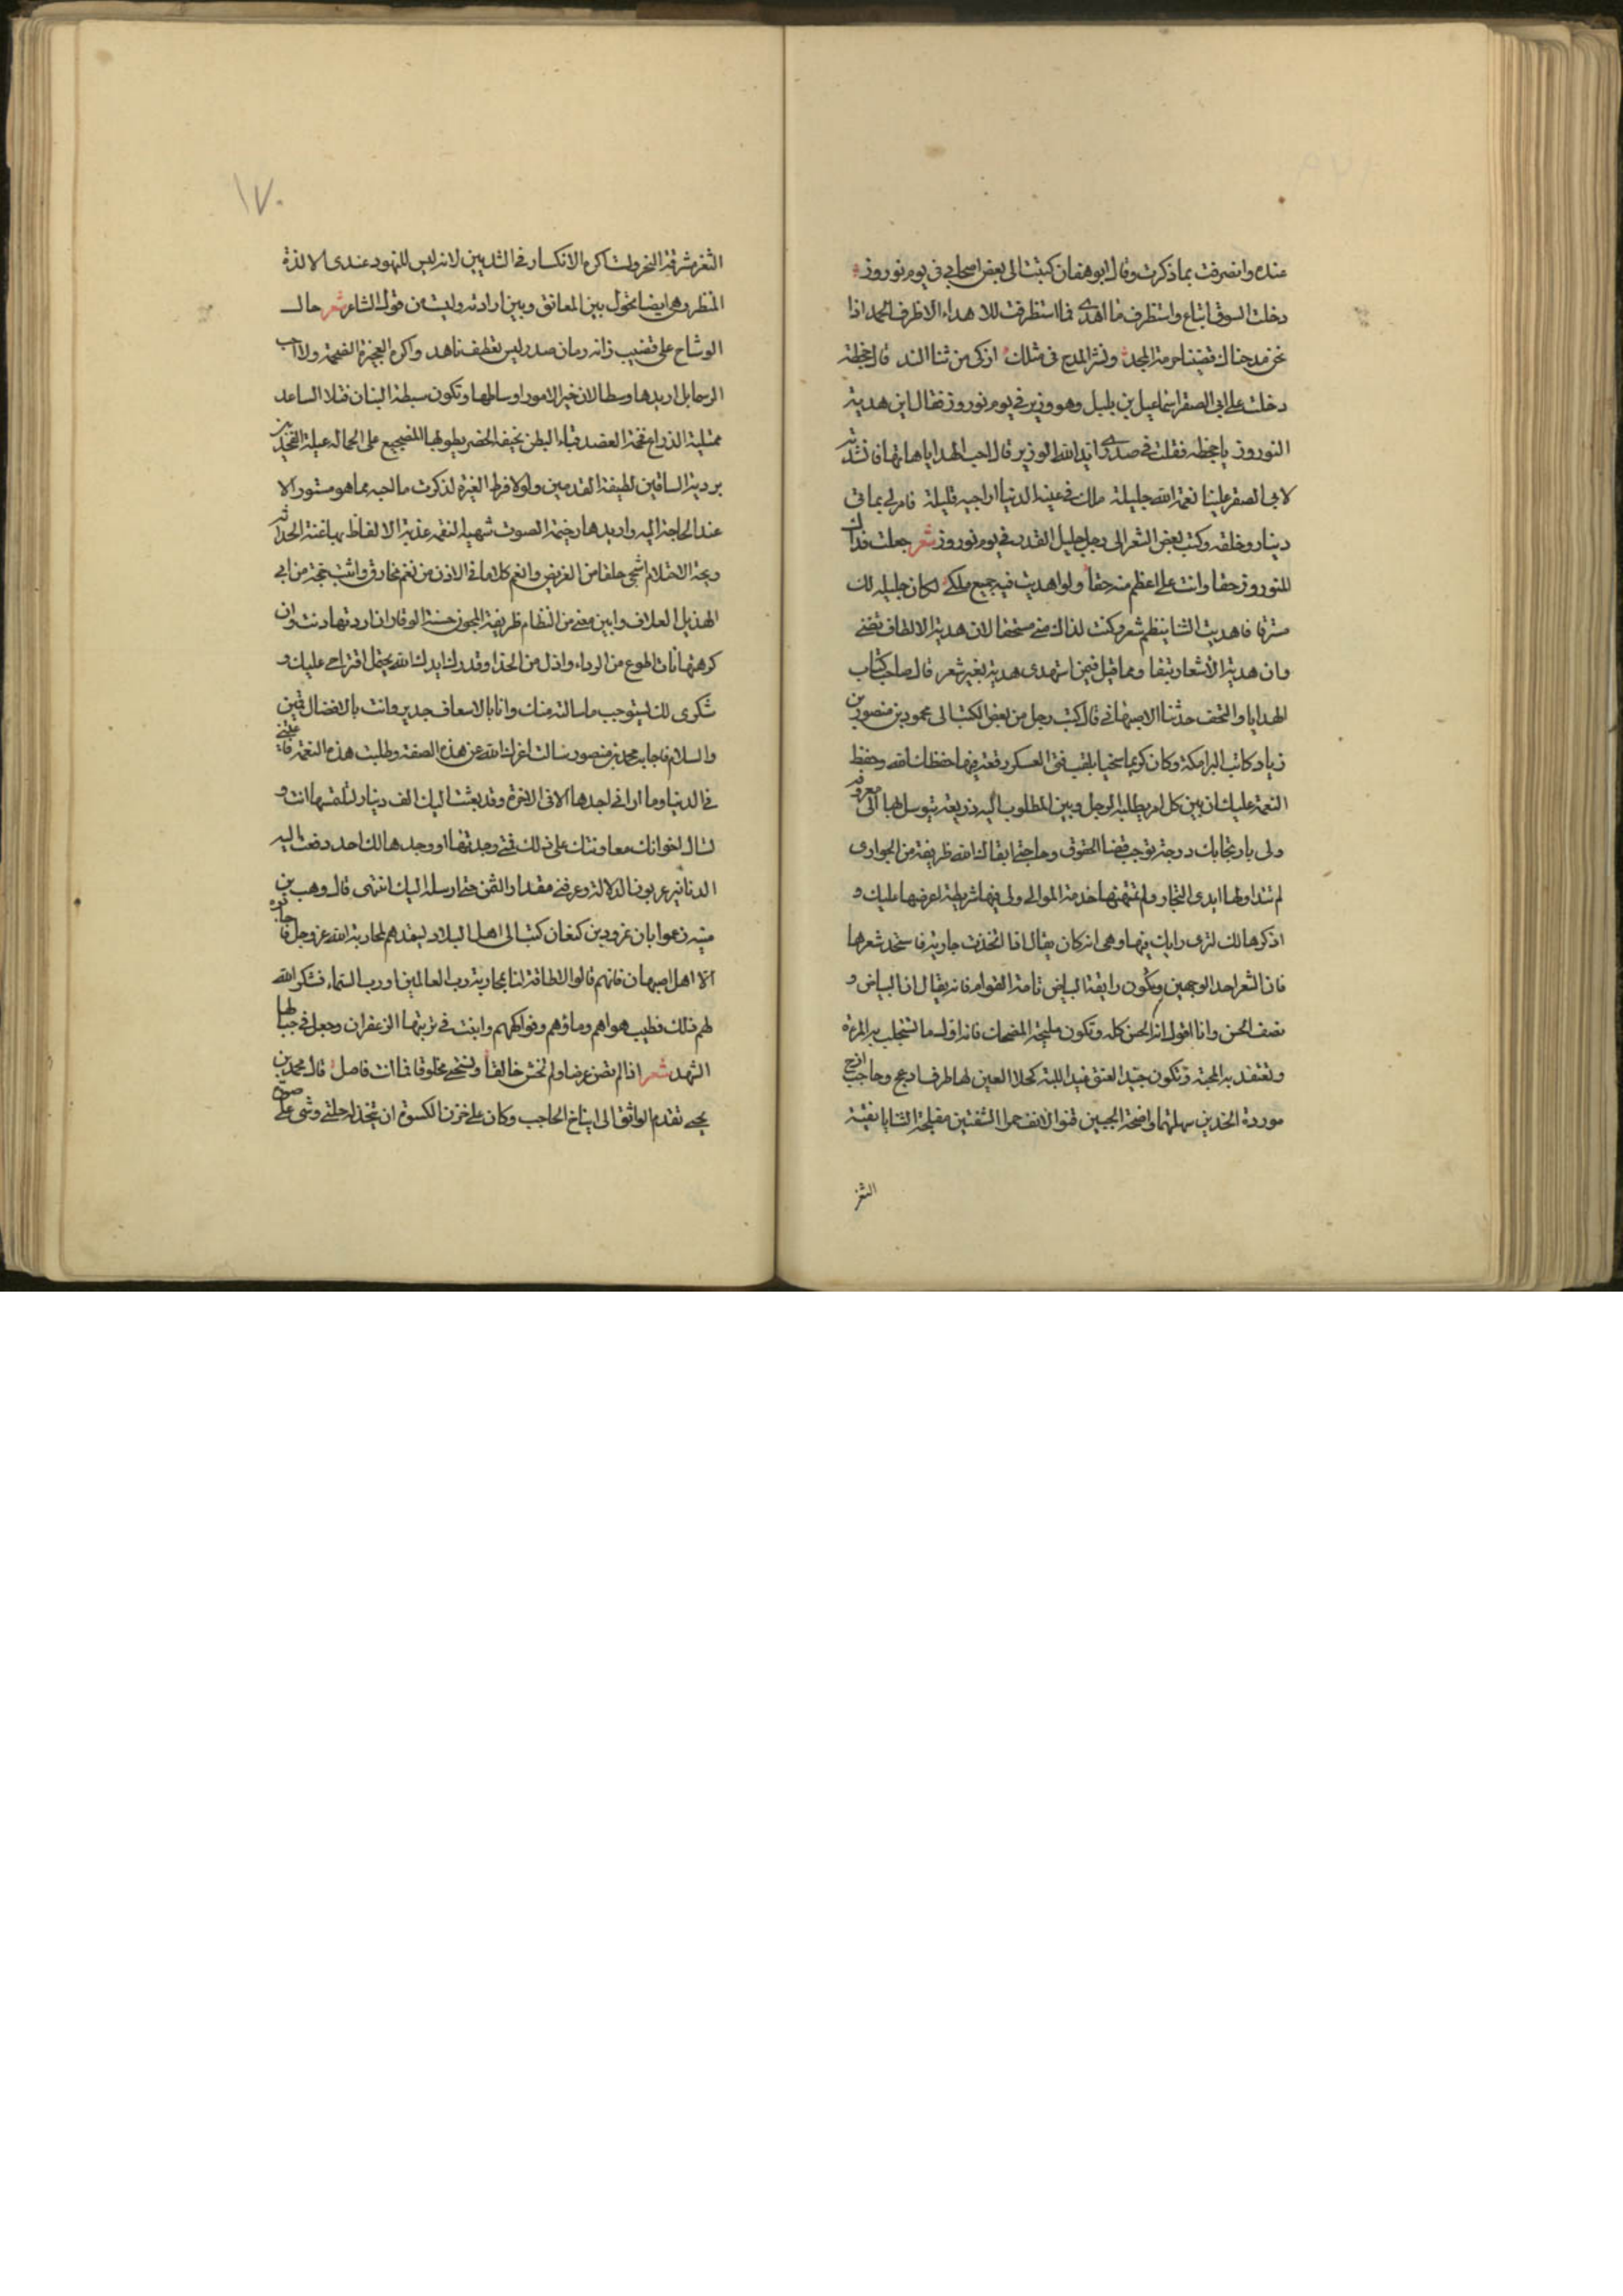 عنده وانصرفت بما ذكرت وقال ابو هفان كتبت الى بعض اصحابي في يوم نوروز
دخلت السوق ابتاع واستظرف ما اهدى فما استظرفت للاهداء الا ظرف الحمد اذا
نحن مدحناك قضينا حرمة المجد ونشر المدح في مثلك ازكى من ثنا الند قال جحظة
دخلت على ابي الصقر اسماعيل بن بلبل وهو وزير في يوم نوروز فقال اين هدية
النوروز يا جحظه فقلت في صدرى ايد الله الوزير قال احب الهدايا هاتها فانشدته
لابى الصقر علينا نعمة الله جليلة ملك في عينه الدنيا لراجيه قليلة فامر لي بماتى
دينار وخلعه وكتب بعض الشعر الى رجل جليل القدر في يوم نوروز شعر جعلت فداك
للنوروز حقا وانت علي اعظم منه حقا ولو اهديت فيه جميع ملكى لكان جليله لك
مسترقا فاهديت الثنا بنظم شعر وكنت لذاك مني مستحقا لان هدية الالطاف تفنى
وان هدية الاشعار تبقا ومما قيل فيمن استهدى هدية بغير شعر قال صاحب كتاب
الهدايا والتحف حدثنا الاصبهاني قال كتب رجل من بعض الكتب الى محمود بن منصور بن
زياد كاتب البرامكة وكان كريما سخيا يلقب فتى العسكر رقعة فيها حفظك الله وحفظ
النعمة عليك ان بين كل امر يطلبه الرجل وبين المطلوب اليه ذريعة يتوسل بها الى معروفه
ولى بارتجائك درجة توجب قضا الحقوق وحاجتي ابقاك الله ظريفة من الجوارى
لم تتداولها ايدى التجار ولم تمتهنها خدمة الموالي ولى فيها شريطة اعرضها عليك و
اذكرها لك لترى رايك فيها وهى انه كان يقال اذا اتخذت جارية فاستجد شعرها
فان الشعر احد الوجهين وتكون رايقة البياض تامة القوام فانه يقال ان البياض و
نصف الحسن وانا اقول انه الحسن كله وتكون مليحة المضحك فانه اول ما تستجلب به المودة
وتعتقد به المحبة وتكون جيدا العنق غيدا اللبة كحلا العين لها طرف ادعج وحاجب ازج
موردة الخدين سهلتهما واضحة الجبين قنوا الانف حمرا الشفتين مفلجة الثنايا نقية
الثغر
١٧٠
الثغر مشرقة النحر ولست اكره الانكسار في الثديين لانه ليس للنهود عندى الا لذة
المنظر وهى ايضا تحول بين المعانق وبين ارادته ولست من قول الشاعر شعر حال
الوشاح على قضيب زانه رمان صدر ليس يقطف ناهد واكره العجيزة الضخمة ولا احب
الرسحا بل اريدها وسطا لان خير الامور اوساطها وتكون سبطة البنان فتلا الساعد
ممتلية الذراع فخمة العضد قباء البطن نحيفة الخصر يطولها الضجيع على الحماله عبلة الفخذين
بردية الساقين لطيفة القدمين ولولا فرط الغيرة لذكرت ما احبه مما هو مستور الا
عند الحاجة اليه واريدها رخيمة الصوت شهية النغمه عذبة الالفاظ بها غنة الحداثه
وبحة الاحتلام اشجى حلقا من الغريض وانغم كلاما في الاذن من نغم مخارق واثبت حجة من ابي
الهذيل العلاف وابين معنى من النظام ظريفة المجون حسنة الوقار ان اردتها دنت وان
كرهتها نات اطوع من الرداء واذل من الحذا وقدرك ايدك الله يحتمل اقتراحي عليك و
شكرى لك ليستوجب ما سالته منك وانا بالاسعاف جدير وانت بالافضال قمين
والسلام فاجابه محمد بن منصور سالت اعزك الله عن هذه الصفة وطلبت هذه النعمة فاعيتني
في الدنيا وما اراني اجدها الا في الاخرة وقد بعثت اليك الف دينار لتلتمسها انت و
تسال اخوانك معاونتك على ذلك فمتى وجدتها او وجدها لك احد دفعت اليه
الدنانير عربونا لدلالة وعرفني مقدار الثمن حتى ارسله اليك انتهى قال وهب بن
منبه زعموا بان نمرود بن كنعان كتب الى اهل البلاد ليعدهم لمحاربة الله عز وجل فاجابوه
الا اهل اصبهان فانهم قالوا لا طاقة لنا بمحاربة رب العالمين ورب السماء فشكر الله
لهم ذلك فطيب هواهم وماؤهم وفواكههم وانبت في تربتها الزعفران وجعل في جبالها
الشهد شعر اذا لم تصن عرضا ولم تخش خالقا وتستحي مخلوقا فما انت فاصل قال محمد بن
يحيى تقدم الواثق الى ايتاخ الحاجب وكان على خزن الكسوة ان يتخذ له حلتي وشى على صورة